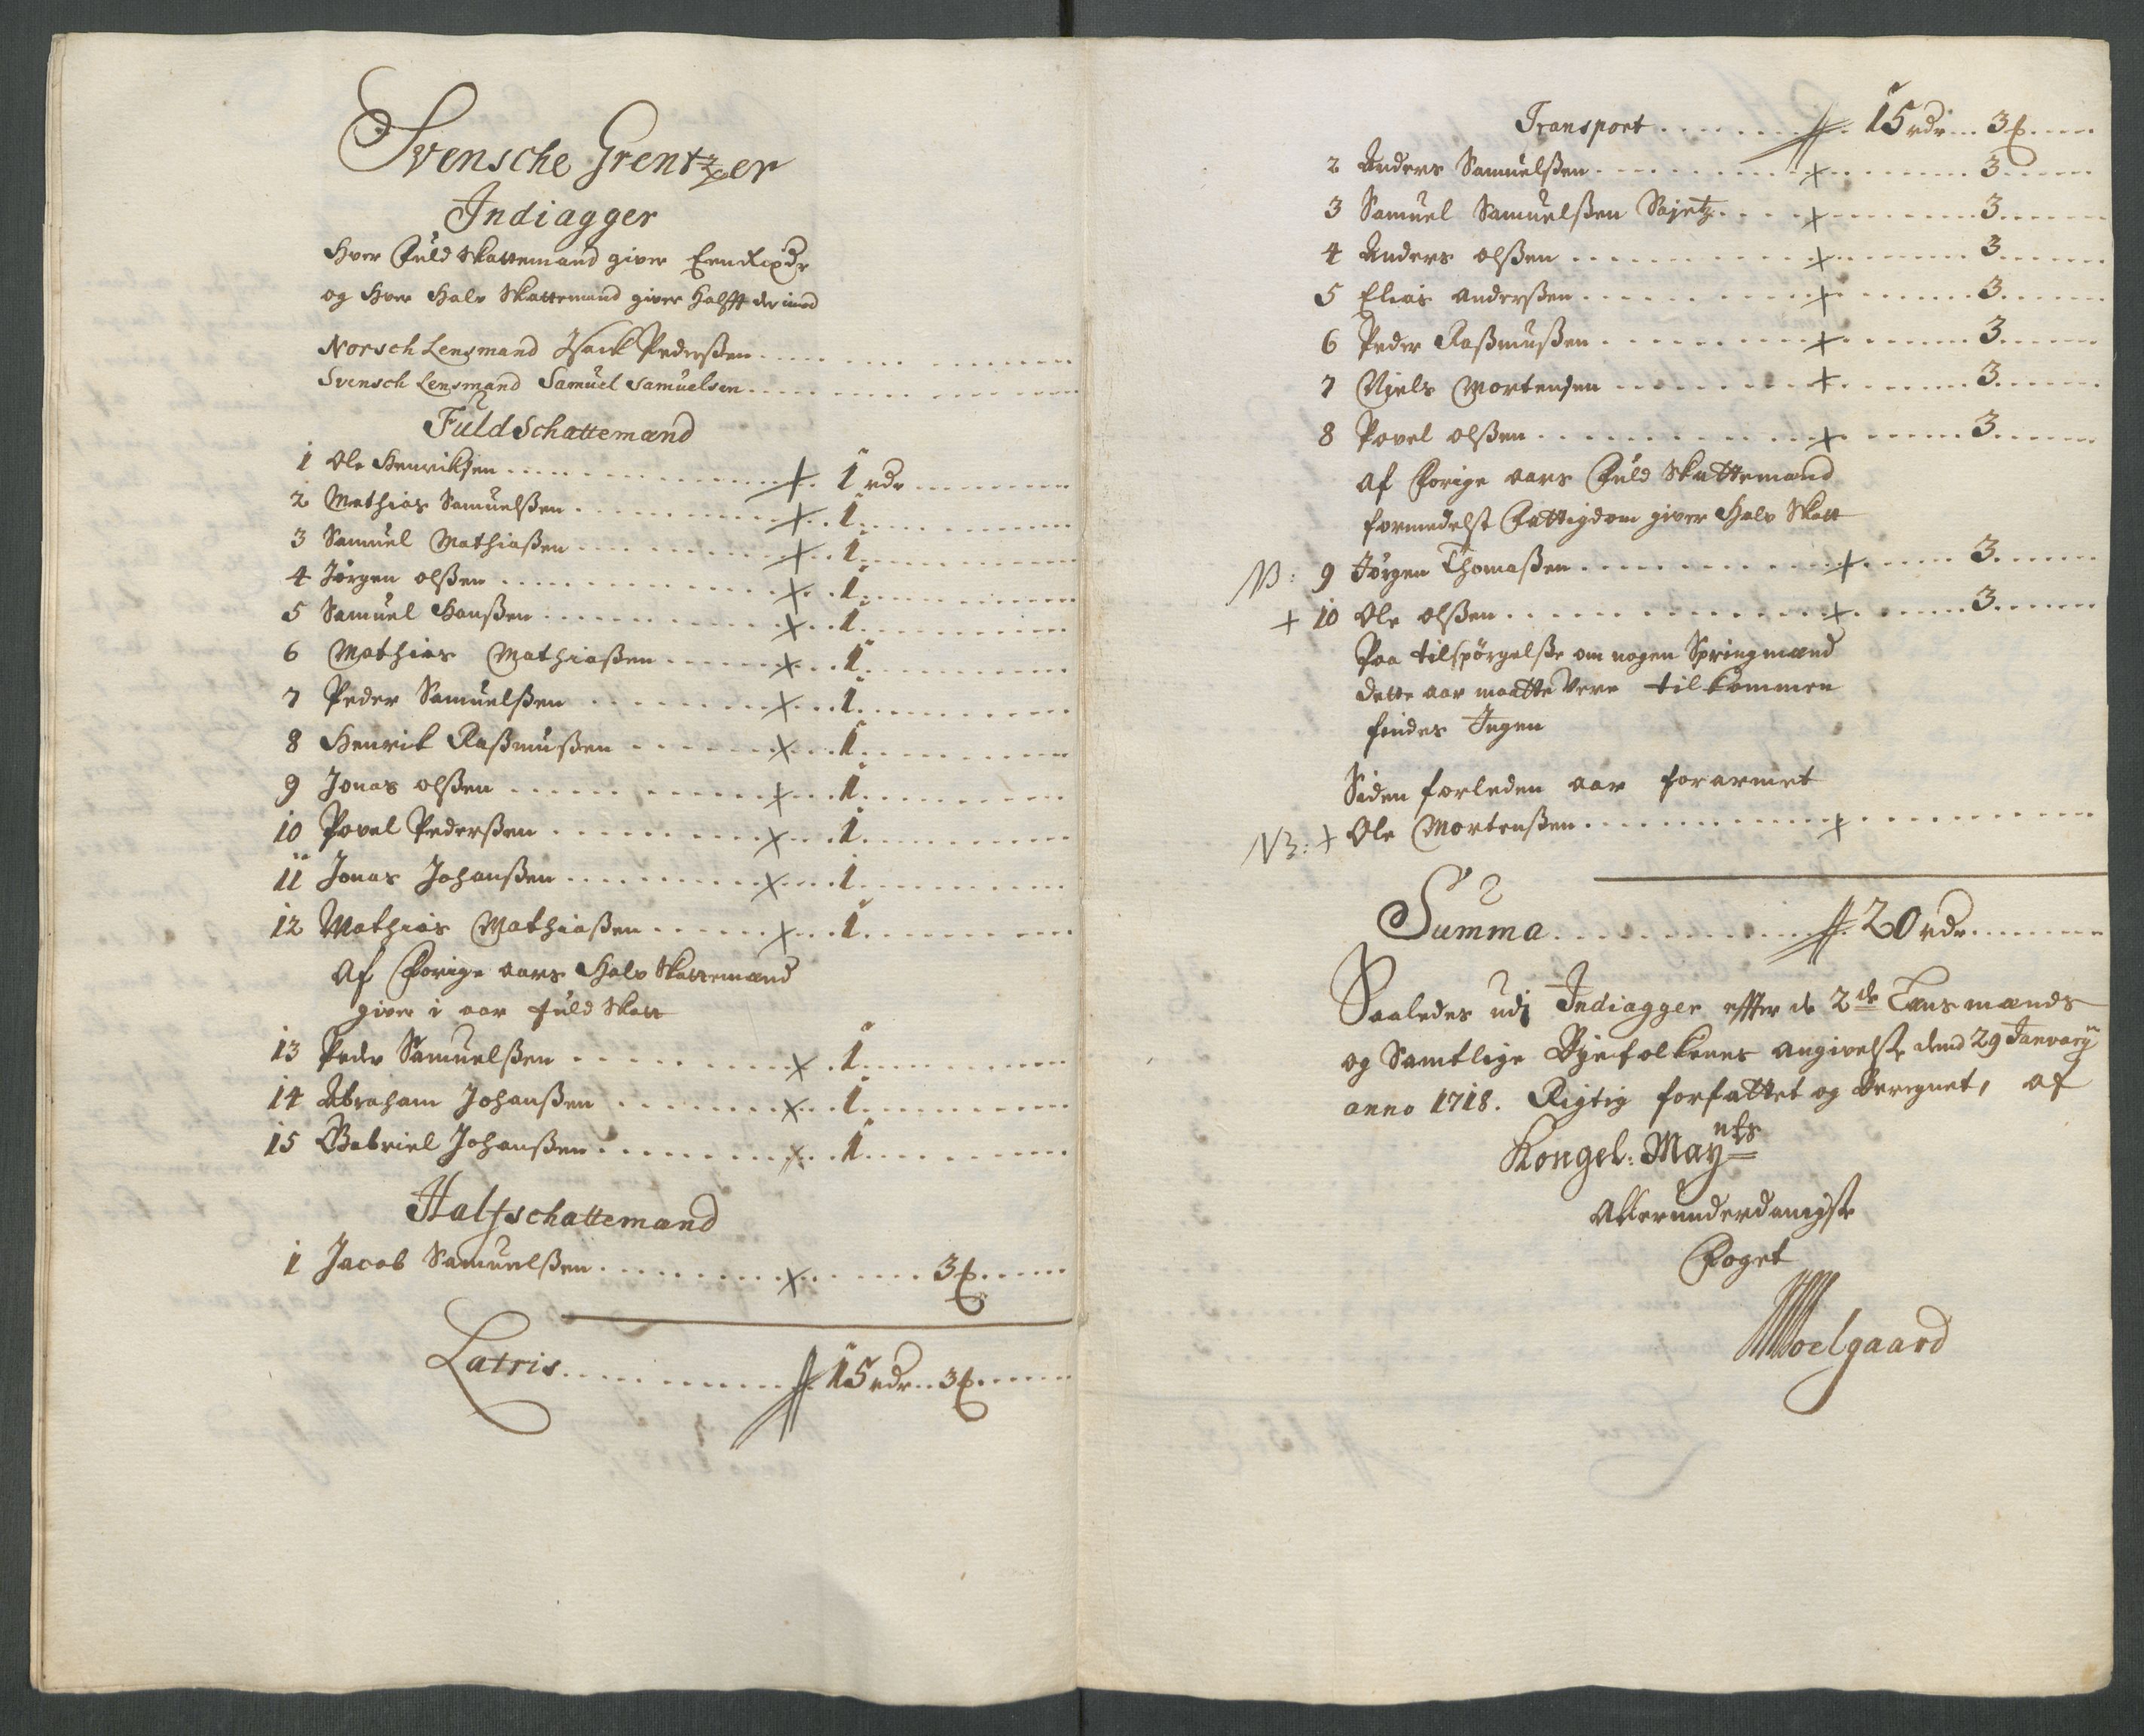 Svensche Grentzer
Indiagger
Hver Fuld Skattemand giver Een Rixdr
og Hver Halv Skattemand giver Halfft der imod
Norsch Lensmand Isack Pederßen
Svensch Lensmand Samuel Samuelsen
Fuld Schattemænd
1 Ole Henriksen + 1 rdr
2 Mathias Samuelßen + 1
3 Samuel Mathiaßen + 1
4 Jörgen olßen + 1
5 Samuel Hanßen + 1
6 Mathias Mathiaßen + 1
7 Peder Samuelßen + 1
8 Henrik Raßmußen + 1
9 Jonas olßen + 1
10 Povel Pederßen + 1
11 Jonas Johanßen + 1
12 Mathias Mathiaßen + 1
Af Forige aars Halv Skattemænd
giver i aar fuld Skatt
13 Peder Samuelßen + 1
14 Abraham Johanßen + 1
15 Gabriel Johanßen + 1
Halfschattemænd
1 Jacob Samuelßen + 3 ß
Latris 15 rdr 3 ß
Transport 15 rdr 3 ß
2 Anders Samuelßen + 3
3 Samuel Samuelßen + 3
4 Anders olßen + 3
5 Elias Anderßen + 3
6 Peder Raßmußen + 3
7 Niels Mortensen + 3
8 Povel olßen + 3
Af Forige aars Fuld Skattemænd
formedelst Fattigdom giver Halv Skatt
NB: 9 Jörgen Thomaßen + 3
+ 10 Ole olßen + 3
Paa tilspörgelße om nogen Springmænd
dette aar maatte Være til kommen
findes Ingen
Siden forleden aar forarmet
NB: + Ole Mortenßen +
Summa 20 rdr
Saaledes udj Indiagger effter de 2de Lænsmænds
og Samtlige Byefolkenes angivelse dend 29 Janvarij
anno 1718. Rigtig forfattet og Beregnet, af
Kongel: Mayts
Allerunderdanigste
Foget
Moelgaard